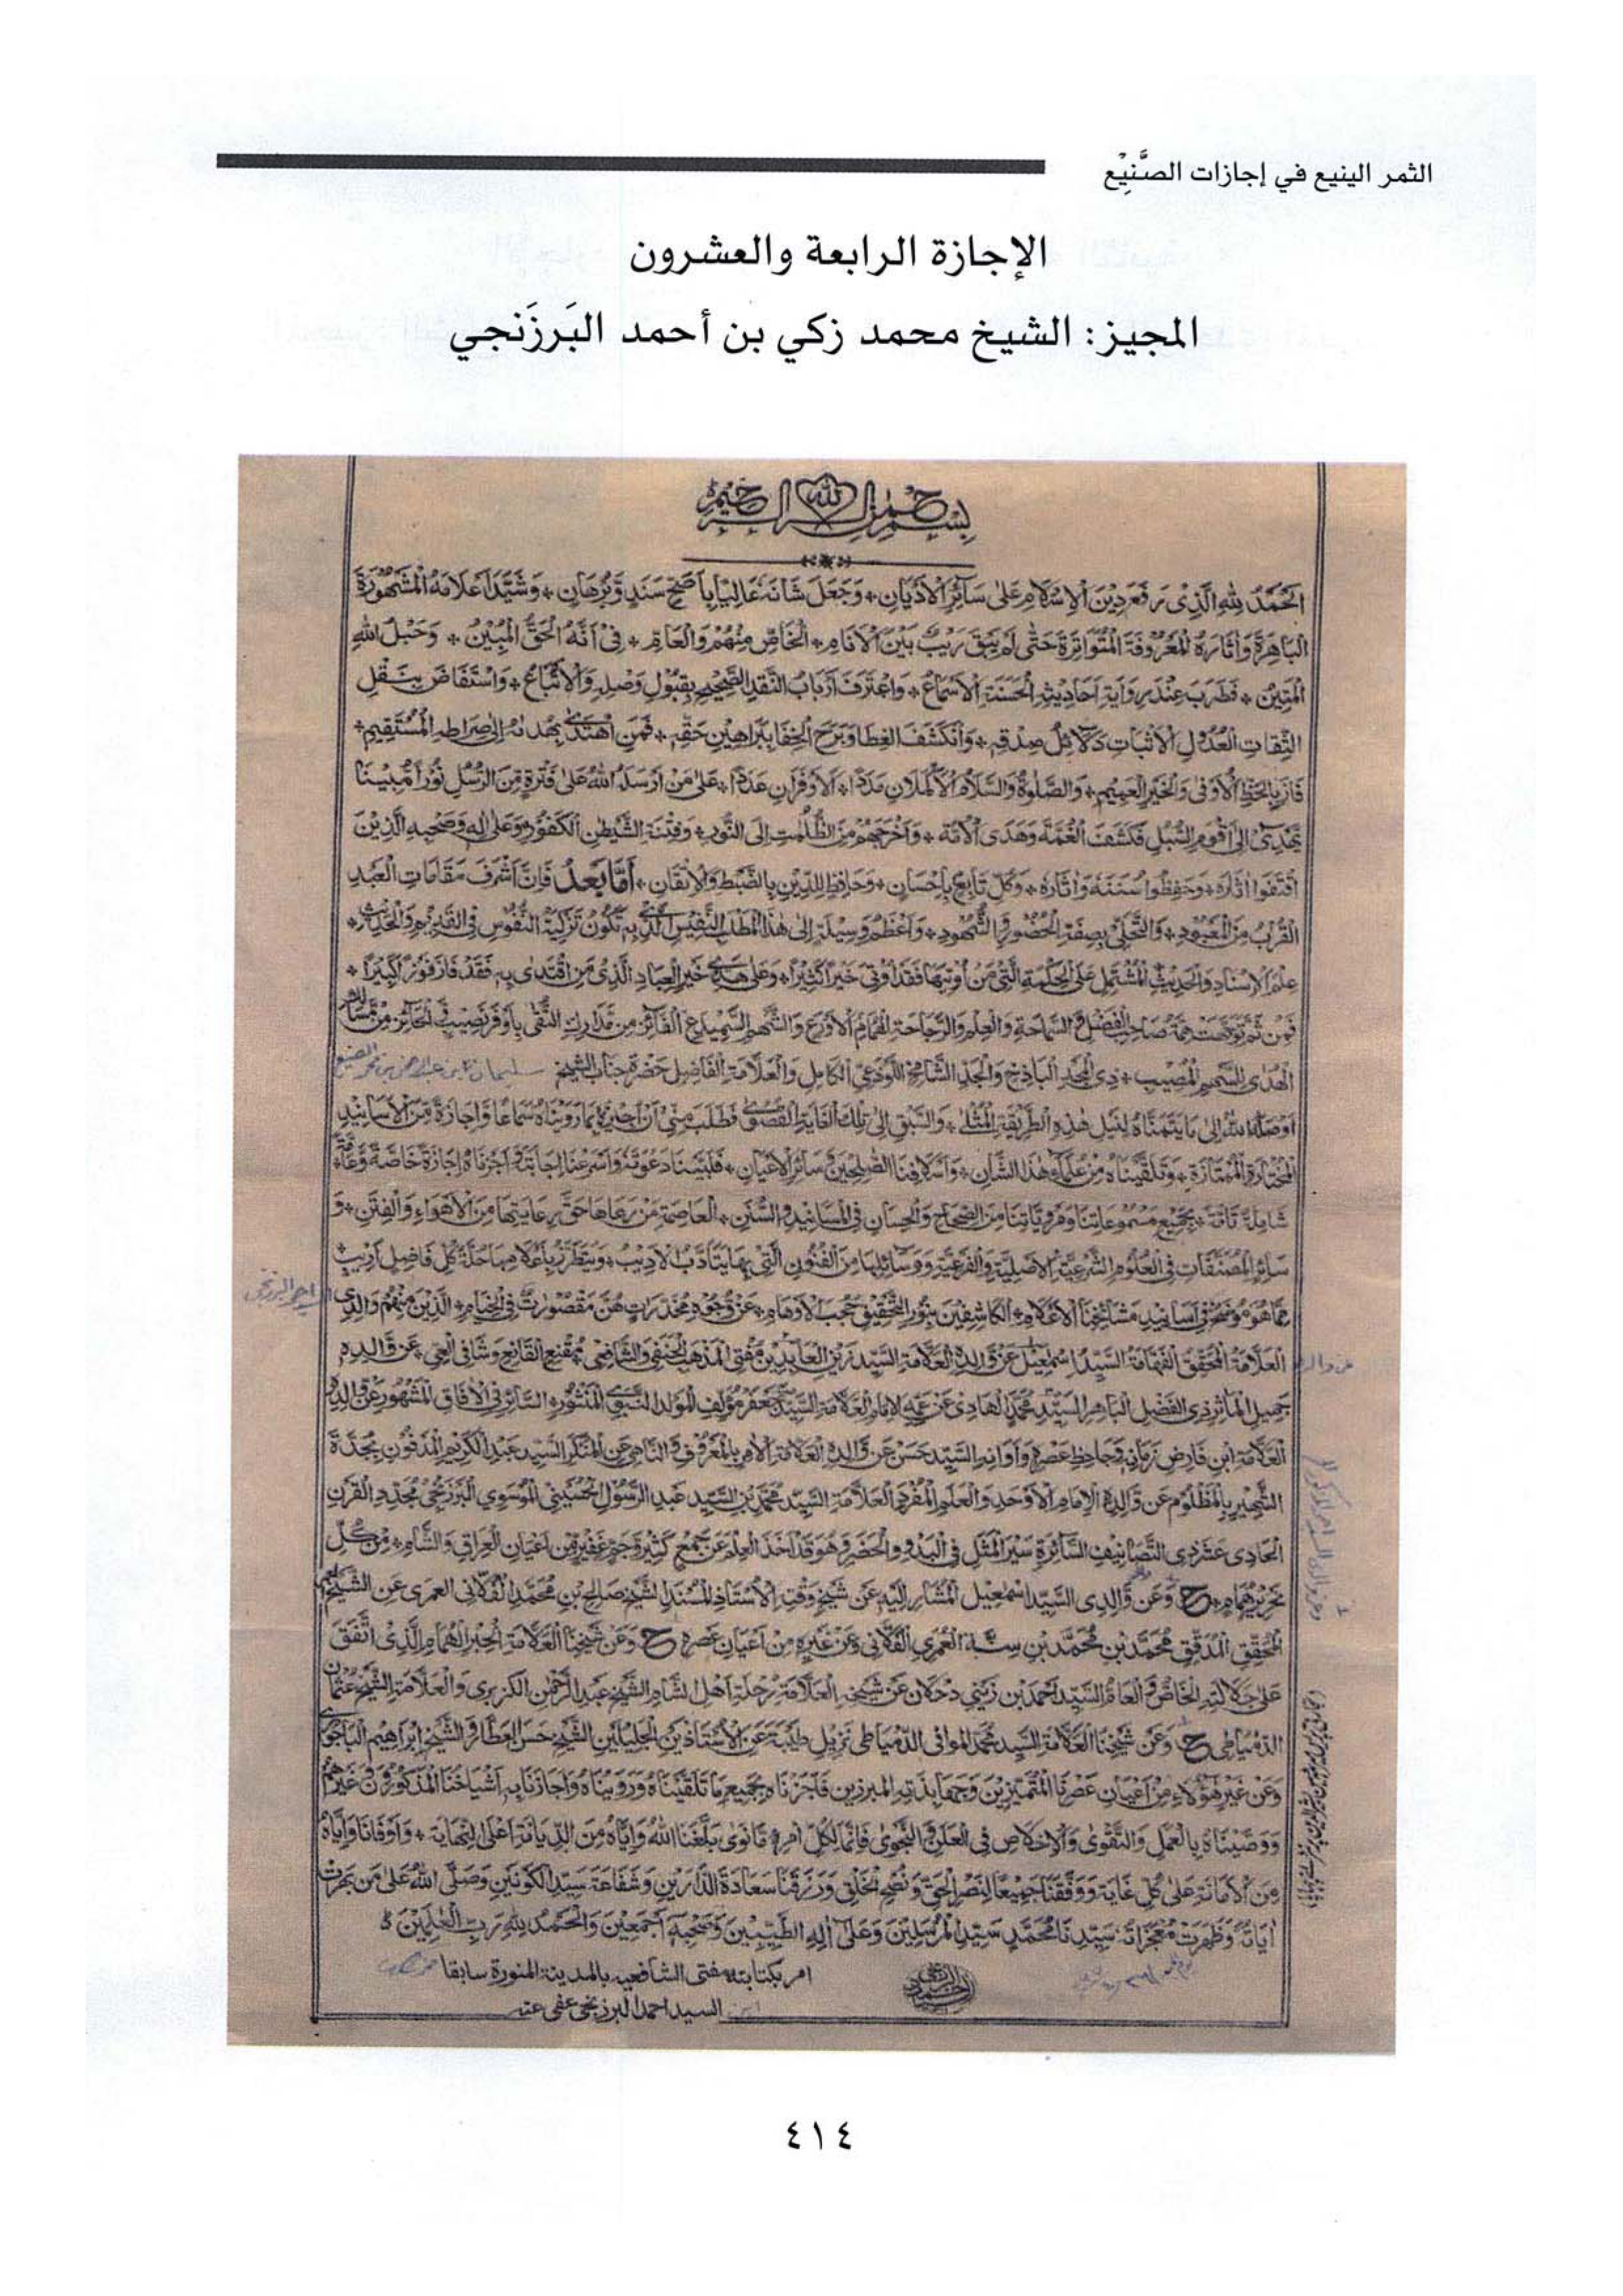 الثمر الينيع في إجازات الصَّنِيْع
الإجازة الرابعة والعشرون
المجيز: الشيخ محمد زكي بن أحمد البَرزَنجي
بسم الله الرحمن الرحيم
الحَمْدُ لِلهِ الَّذِى رَفَعَ دِيْنَ الْاِسْلَامِ عَلٰى سَائِرِ الْاَدْيَانِ * وَجَعَلَ شَانَهٗ عَالِيًا بِاَصَحِّ سَنَدٍ وَّبُرْهَان * وَشَيَّدَ اَعْلَامَهُ الْمَشْهُوْرَةَ
البَاهِرَةَ وَاٰثَارَهُ الْمَعْرُوْفَةَ الْمُتَوَاتِرَةَ حَتّٰى لَمْ يَبْقَ رَيْبٌ بَيْنَ الْاَنَامِ * الْخَاصِّ مِنْهُمْ وَالْعَامِّ * فِىْ اَنَّهُ الْحَقُّ الْمُبِيْنُ * وَحَبْلُ اللهِ
الْمَتِيْن * فَطَرِبَ عِنْدَ رِوَايَةِ اَحَادِيْثِهِ الْحَسَنَةِ الْاَسْمَاعُ * وَاعْتَرَفَ اَرْبَابُ النَّقْدِ الصَّحِيْحِ بِقَبُوْلِ وَصْلِهٖ وَالْاِتْبَاعِ * وَاسْتَفَاضَ بِنَقْلِ
الثِّقَاتِ العُدُوْلِ الْاَثْبَاتِ دَلَائِلُ صِدْقِهٖ * وَانْكَشَفَ الغِطَا وَبَرَحَ الْخِفَا بِبَرَاهِيْنِ حَقِّهٖ * فَمَنِ اهْتَدٰى بِهُدَاهُ اِلٰى صِرَاطِهِ الْمُسْتَقِيْمِ *
فَازَ بِالحَظِّ الْاَوْفٰى وَالْخَيْرِ العَمِيْمِ * وَالصَّلٰوةُ وَالسَّلَامُ الْاَكْمَلَانِ مَدَدًا * الْاَوْفَرَانِ عَدَدًا * عَلٰى مَنْ اَرْسَلَهُ اللهُ عَلٰى فَتْرَةٍ مِّنَ الرُّسُلِ نُوْرًا مُّبِيْنًا
يَهْدِىْ اِلٰى اَقْوَمِ السُّبُلِ فَكَشَفَ الْغُمَّةَ وَهَدَى الْاُمَّةَ * وَاَخْرَجَهُمْ مِّنَ الظُّلُمٰتِ اِلَى النُّوْرِ * وَفِتْنَةِ الشَّيْطٰنِ الْكَفُوْرِ * وَعَلٰى اٰلِهٖ وَصَحْبِهِ الَّذِيْنَ
اقْتَفَوْا اٰثَارَهٗ * وَحَفِظُوْا سُنَنَهٗ وَاٰثَارَهٗ * وَكُلِّ تَابِعٍ بِاِحْسَانٍ * وَحَافِظٍ لِلدِّيْنِ بِالضَّبْطِ وَالْاِتْقَانِ * اَمَّا بَعْدُ فَاِنَّ اَشْرَفَ مَقَامَاتِ الْعَبْدِ
القُرْبُ مِنَ المَعْبُوْدِ * وَالتَّحَلِّىْ بِصِفَةِ الْحُضُوْرِ وَالشُّهُوْدِ * وَاَعْظَمُ وَسِيْلَةٍ اِلٰى هٰذَا الْمَطْلَبِ النَّفِيْسِ الَّذِىْ بِهٖ تَكُوْنُ تَزْكِيَةُ النُّفُوْسِ فِى القَدِيْمِ وَالْحَدِيْثِ *
عِلْمُ الْاِسْنَادِ وَالْحَدِيْثِ الْمُشْتَمِلِ عَلَى الْحِكْمَةِ الَّتِىْ مَنْ اُوْتِيَهَا فَقَدْ اُوْتِىَ خَيْرًا كَثِيْرًا * وَعَلٰى هَدْىِ خَيْرِ الْعِبَادِ الَّذِىْ مَنِ اقْتَدٰى بِهٖ فَقَدْ فَازَ فَوْزًا كَبِيْرًا *
فَمِنْ ثَمَّ تَوَجَّهَتْ هِمَّةُ صَاحِبِ الْفَضْلِ وَ السَّمَاحَةِ وَالْعِلْمِ وَالرَّجَاحَةِ الْهُمَامِ الْاَوْرَعِ وَالشَّهْمِ السَّمَيْدَعِ الْفَائِزِ مِنْ مَّدَارِكِ التُّقٰى بِاَوْفَرِ نَصِيْبٍ الْحَائِزِ مِنْ مَّسَالِكِ
الْهُدٰى لِلسَّهْمِ الْمُصِيْب * ذِى الْمَجْدِ الْبَاذِخِ وَالْجَدِّ الشَّامِخِ اللَّوْذَعِىِّ الْكَامِلِ وَالْعَلَّامَةِ الْفَاضِلِ حَضْرَةِ جَنَابِ الشَّيْخِ سليمان بن عبد الرحمن بن محمد الصنيع
اَوْصَلَهُ اللهُ اِلٰى مَا يَتَمَنَّاهُ لِنَيْلِ هٰذِهِ الطَّرِيْقَةِ الْمُثْلٰى * وَالسَّبْقِ اِلٰى تِلْكَ الْغَايَةِ الْقُصْوٰى فَطَلَبَ مِنِّىْ اَنْ اُجِيْزَهٗ بِمَا رَوَيْنَاهُ سَمَاعًا وَّاِجَازَةً مِّنَ الْاَسَانِيْدِ
الْمُخْتَارَةِ الْمُمْتَازَةِ * وَتَلَقَّيْنَاهُ مِنْ عُلَمَاءِ هٰذَا الشَّانِ * وَاَسْلَافِنَا الصّٰلِحِيْنَ سَائِرِ الْاَعْيَانِ * فَلَبَّيْنَا دَعْوَتَهٗ وَاَسْرَعْنَا اِجَابَتَهٗ وَاَجَزْنَاهُ اِجَازَةً خَاصَّةً وَّعَامَّةً
شَامِلَةً تَامَّةً * بِجَمِيْعِ مَسْمُوْعَاتِنَا وَمَرْوِيَّاتِنَا مِنَ الصِّحَاحِ وَالْحِسَانِ فِى الْمَسَانِيْدِ وَالسُّنَنِ * الْعَاصِمَةِ مَنْ رَعَاهَا حَقَّ رِعَايَتِهَا مِنَ الْاَهْوَاءِ وَالْفِتَنِ * وَ
سَائِرِ الْمُصَنَّفَاتِ فِى الْعُلُوْمِ الشَّرْعِيَّةِ الْاَصْلِيَّةِ وَالْفَرْعِيَّةِ وَوَسَائِلِهَا مِنَ الْفُنُوْنِ الَّتِىْ بِهَا يَتَاَدَّبُ الْاَدِيْبُ * وَيَتَطَرَّزُ بِاَعْلَامِهَا حُلَّةُ كُلِّ فَاضِلٍ اَرِيْبٍ *
مِمَّا هُوَ مُوَضَّحٌ فِىْ اَسَانِيْدِ مَشَائِخِنَا الْاَعْلَامِ * الْكَاشِفِيْنَ بِنُوْرِ التَّحْقِيْقِ حُجُبَ الْاَوْهَامِ * عَنْ وُّجُوْهِ مُخَدَّرَاتٍ هُنَّ مَقْصُوْرَاتٌ فِى الْخِيَامِ * الَّذِيْنَ مِنْهُمْ وَالِدِى السيد احمد البرزنجى
عن والده الْعَلَّامَةُ الْمُحَقِّقُ الْفَهَّامَةُ السَّيِّدُ اِسْمٰعِيْلُ عَنْ وَّالِدِهِ الْعَلَّامَةِ السَّيِّدِ زَيْنِ الْعَابِدِيْنَ مُفْتِى الْمَذْهَبِ الْحَنَفِىِّ وَالشَّافِعِىِّ مُقْنِعِ الْقَانِعِ وَشَافِى الْعِىِّ * عَنْ وَّالِدِهٖ
جَمِيْلِ الْمَاٰثِرِ ذِى الْفَضْلِ الْبَاهِرِ السَّيِّدِ مُحَمَّدٍ الْهَادِىْ عَنْ عَمِّهِ الْاِمَامِ الْعَلَّامَةِ السَّيِّدِ جَعْفَرٍ مُؤَلِّفِ الْمَوْلِدِ النَّبَوِىِّ الْمَنْثُوْرِ * السَّائِرِ فِى الْاٰفَاقِ الْمَشْهُوْرِ عَنْ وَّالِدِهِ
الْعَلَّامَةِ ابْنِ فَارِضِ زَمَانِهٖ وَجَاحِظِ عَصْرِهٖ وَاَوَانِهِ السَّيِّدِ حَسَنٍ عَنْ وَّالِدِهِ الْعَلَّامَةِ الْاٰمِرِ بِالْمَعْرُوْفِ وَالنَّاهِىْ عَنِ الْمُنْكَرِ السَّيِّدِ عَبْدِ الْكَرِيْمِ الْمَدْفُوْنِ بِجُدَّةَ
الشَّهِيْرِ بِالْمَظْلُوْمِ عَنْ وَّالِدِهِ الْاِمَامِ الْاَوْحَدِ وَالْعَلَمِ الْمُفْرَدِ الْعَلَّامَةِ السَّيِّدِ مُحَمَّدِ بْنِ السَّيِّدِ عَبْدِ الرَّسُوْلِ الْحُسَيْنِىِّ الْمُوْسَوِى الْبَرْزَنْجِىِّ مُجَدِّدِ الْقَرْنِ
الْحَادِىْ عَشَرَ ذِى التَّصَانِيْفِ السَّائِرَةِ سَيْرَ الْمَثَلِ فِى الْبَدْوِ وَالْحَضَرِ وَهُوَ قَدْ اَخَذَ الْعِلْمَ عَنْ جَمْعٍ كَثِيْرٍ وَجَمٍّ غَفِيْرٍ مِّنْ اَعْيَانِ الْعِرَاقِ وَالشَّامِ * مِنْ كُلِّ
نِحْرِيْرٍ هُمَامٍ * ح وَعَنْ وَّالِدِى السَّيِّدِ اِسْمٰعِيْلَ الْمُشَارِ اِلَيْهِ عَنْ شَيْخِ وَقْتِهِ الْاُسْتَاذِ الْمُسْنِدِ الشَّيْخِ صَالِحِ بْنِ مُحَمَّدٍ الْفُلَّانِى الْعُمَرِى عَنِ الشَّيْخِ
الْمُحَقِّقِ الْمُدَقِّقِ مُحَمَّدِ بْنِ مُحَمَّدِ بْنِ سِنَّةَ الْعُمَرِى الْفُلَّانِى وَعَنْ غَيْرِهٖ مِنْ اَعْيَانِ عَصْرِهٖ ح وَعَنْ شَيْخِنَا الْعَلَّامَةِ الْحِبْرِ الْهُمَامِ الَّذِى اتَّفَقَ
عَلٰى جَلَالَتِهِ الْخَاصُّ وَالْعَامُّ السَّيِّدِ اَحْمَدَ بْنِ زَيْنِىْ دَحْلَانَ عَنْ شَيْخِهِ الْعَلَّامَةِ رُحْلَةِ اَهْلِ الشَّامِ الشَّيْخِ عَبْدِ الرَّحْمٰنِ الْكُزْبَرِى وَالْعَلَّامَةِ الشَّيْخِ عُثْمَان
الدِّمْيَاطِى ح وَعَنْ شَيْخِنَا الْعَلَّامَةِ السَّيِّدِ مُحَمَّدٍ الموافى الدِّمْيَاطِى نَزِيْلِ طَيْبَةَ عَنِ الْاُسْتَاذَيْنِ الْجَلِيْلَيْنِ الشَّيْخِ حَسَنٍ الْعَطَّارِ وَالشَّيْخِ اِبْرَاهِيْمَ الْبَاجُوْرِى
وَعَنْ غَيْرِ هٰؤُلَاءِ مِنْ اَعْيَانِ عَصْرِنَا الْمُتَمَيِّزِيْنَ وَجَهَابِذَتِهِ الْمُبَرِّزِيْنَ فَاَجَزْنَاهُ بِجَمِيْعِ مَا تَلَقَّيْنَاهُ وَرَوَيْنَاهُ وَاَجَازَنَا بِهٖ اَشْيَاخُنَا الْمَذْكُوْرُوْنَ وَغَيْرُهُمْ
وَوَصَّيْنَاهُ بِالْعَمَلِ وَالتَّقْوٰى وَالْاِخْلَاصِ فِى الْعَلَنِ وَالنَّجْوٰى فَاِنَّمَا لِكُلِّ امْرِءٍ مَّا نَوٰى بَلَّغَنَا اللهُ وَاِيَّاهُ مِنَ الدِّيَانَةِ اَعْلَى النِّهَايَة * وَاَوْفَانَا وَاِيَّاهُ
مِنَ الْاَمَانَةِ عَلٰى كُلِّ غَايَةٍ وَوَفَّقَنَا جَمِيْعًا لِنَصْرِ الْحَقِّ وَنُصْحِ الْخَلْقِ وَرَزَقَنَا سَعَادَةَ الدَّارَيْنِ وَشَفَاعَةَ سَيِّدِ الْكَوْنَيْنِ وَصَلَّى اللهُ عَلٰى مَنْ بَهَرَتْ
اٰيَاتُهٗ وَظَهَرَتْ مُعْجِزَاتُهٗ سَيِّدِنَا مُحَمَّدٍ سَيِّدِ الْمُرْسَلِيْنَ وَعَلٰى اٰلِهِ الطَّيِّبِيْنَ وَصَحْبِهٖ اَجْمَعِيْنَ وَالْحَمْدُ لِلهِ رَبِّ الْعٰلَمِيْنَ
امر بكتابته مفتى الشافعيه بالمدينة المنورة سابقا
ابن السيد احمد البرزنجى عفى عنه
٤١٤